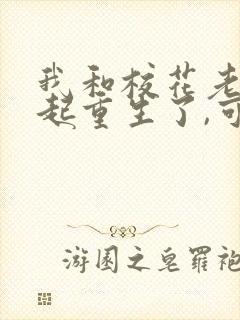 我和校花老
起重生了,可
游园之皂罗袍